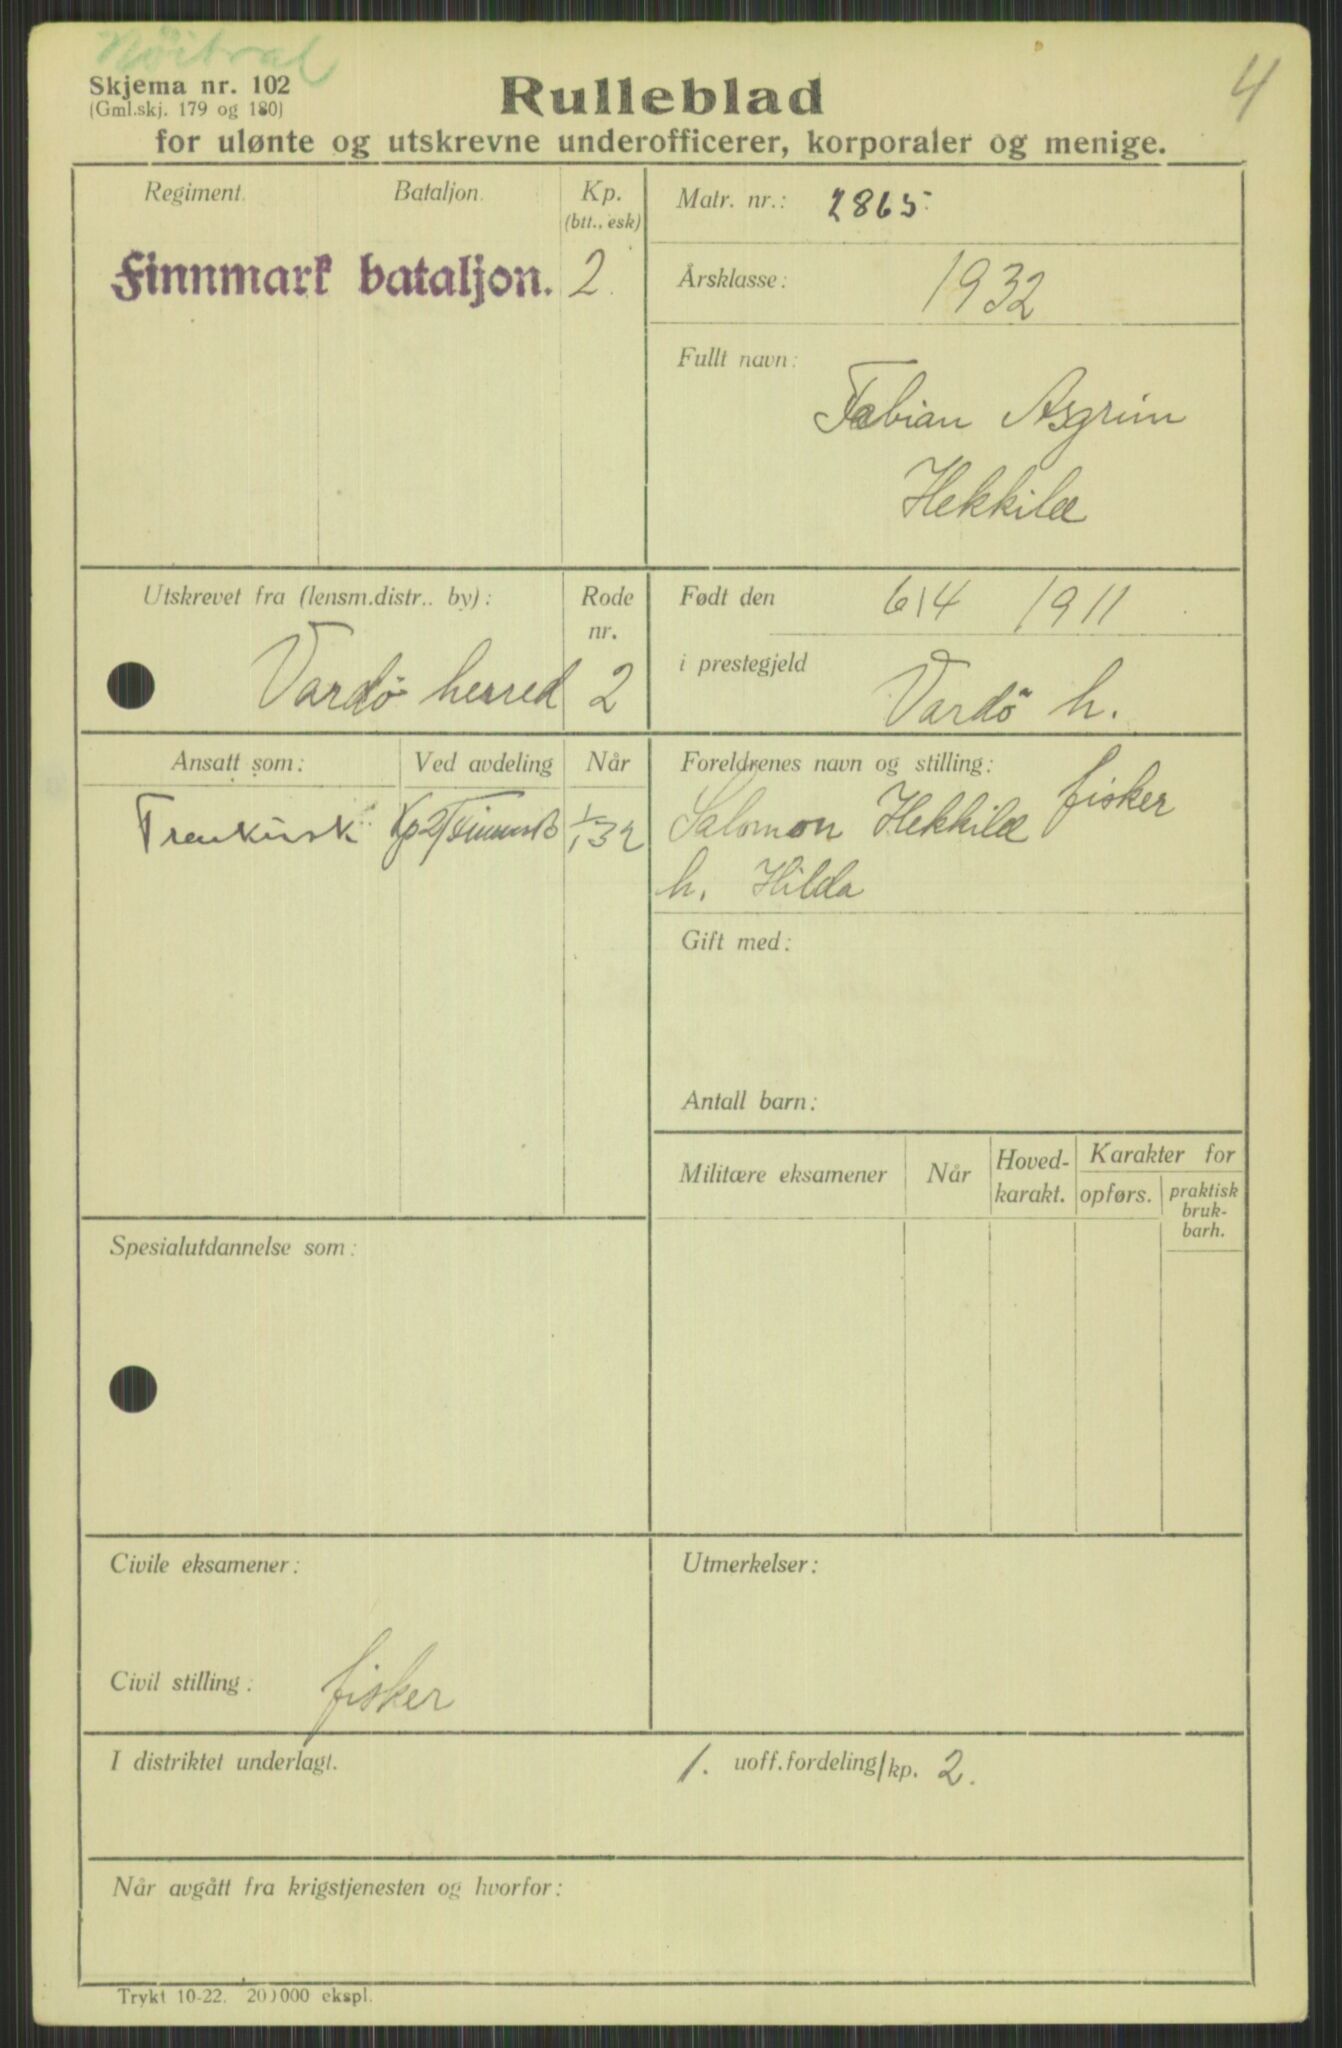 Nöitral
4
Skjema nr. 102
(Gml.skj. 179 og 180)
Rulleblad
for ulønte og utskrevne underofficerer, korporaler og menige.
Regiment. Bataljon. Kp.
(btt., esk)
Finnmark bataljon. 2.
Matr. nr.: 2865.
Årsklasse: 1932
Fullt navn:
Fabian Asgrim
Hekkilæ
Utskrevet fra (lensm.distr.. by): Rode
nr.
Vardö herred 2
Født den 6/4 1911
i prestegjeld
Vardö h.
Ansatt som: Ved avdeling Når
Kp 2/ 1/1 32
Foreldrenes navn og stilling:
Salomon Hekkilæ fisker
h. Hilda
Gift med:
Antall barn:
Militære eksamener Når Hoved-
karakt. Karakter for
opførs. praktisk
bruk-
barh.
Spesialutdannelse som:
Civile eksamener:
Civil stilling: fisker
Utmerkelser:
I distriktet underlagt. 1. uoff.fordeling/kp. 2.
Når avgått fra krigstjenesten og hvorfor:
Trykt 10-22. 200000 ekspl.